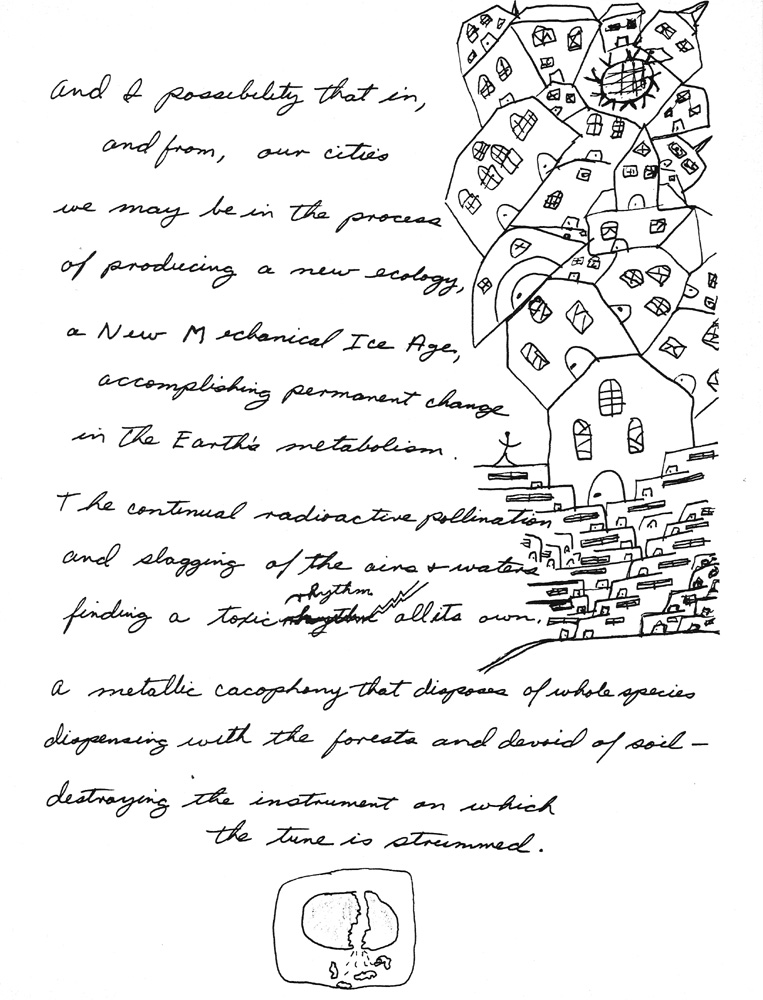 And I possibility that in,
and from, our cities
we may be in the process
of producing a new ecology,
a New Mechanical Ice Age,
accomplishing permanent change
in the Earth's metabolism.
The continual radioactive pollination
and slagging of the airs & waters
rhythm
finding a toxic rhythm all its own.
A metallic cacophony that disposes of whole species
dispensing with the forests and devoid of soil –
destroying the instrument on which
the tune is strummed.